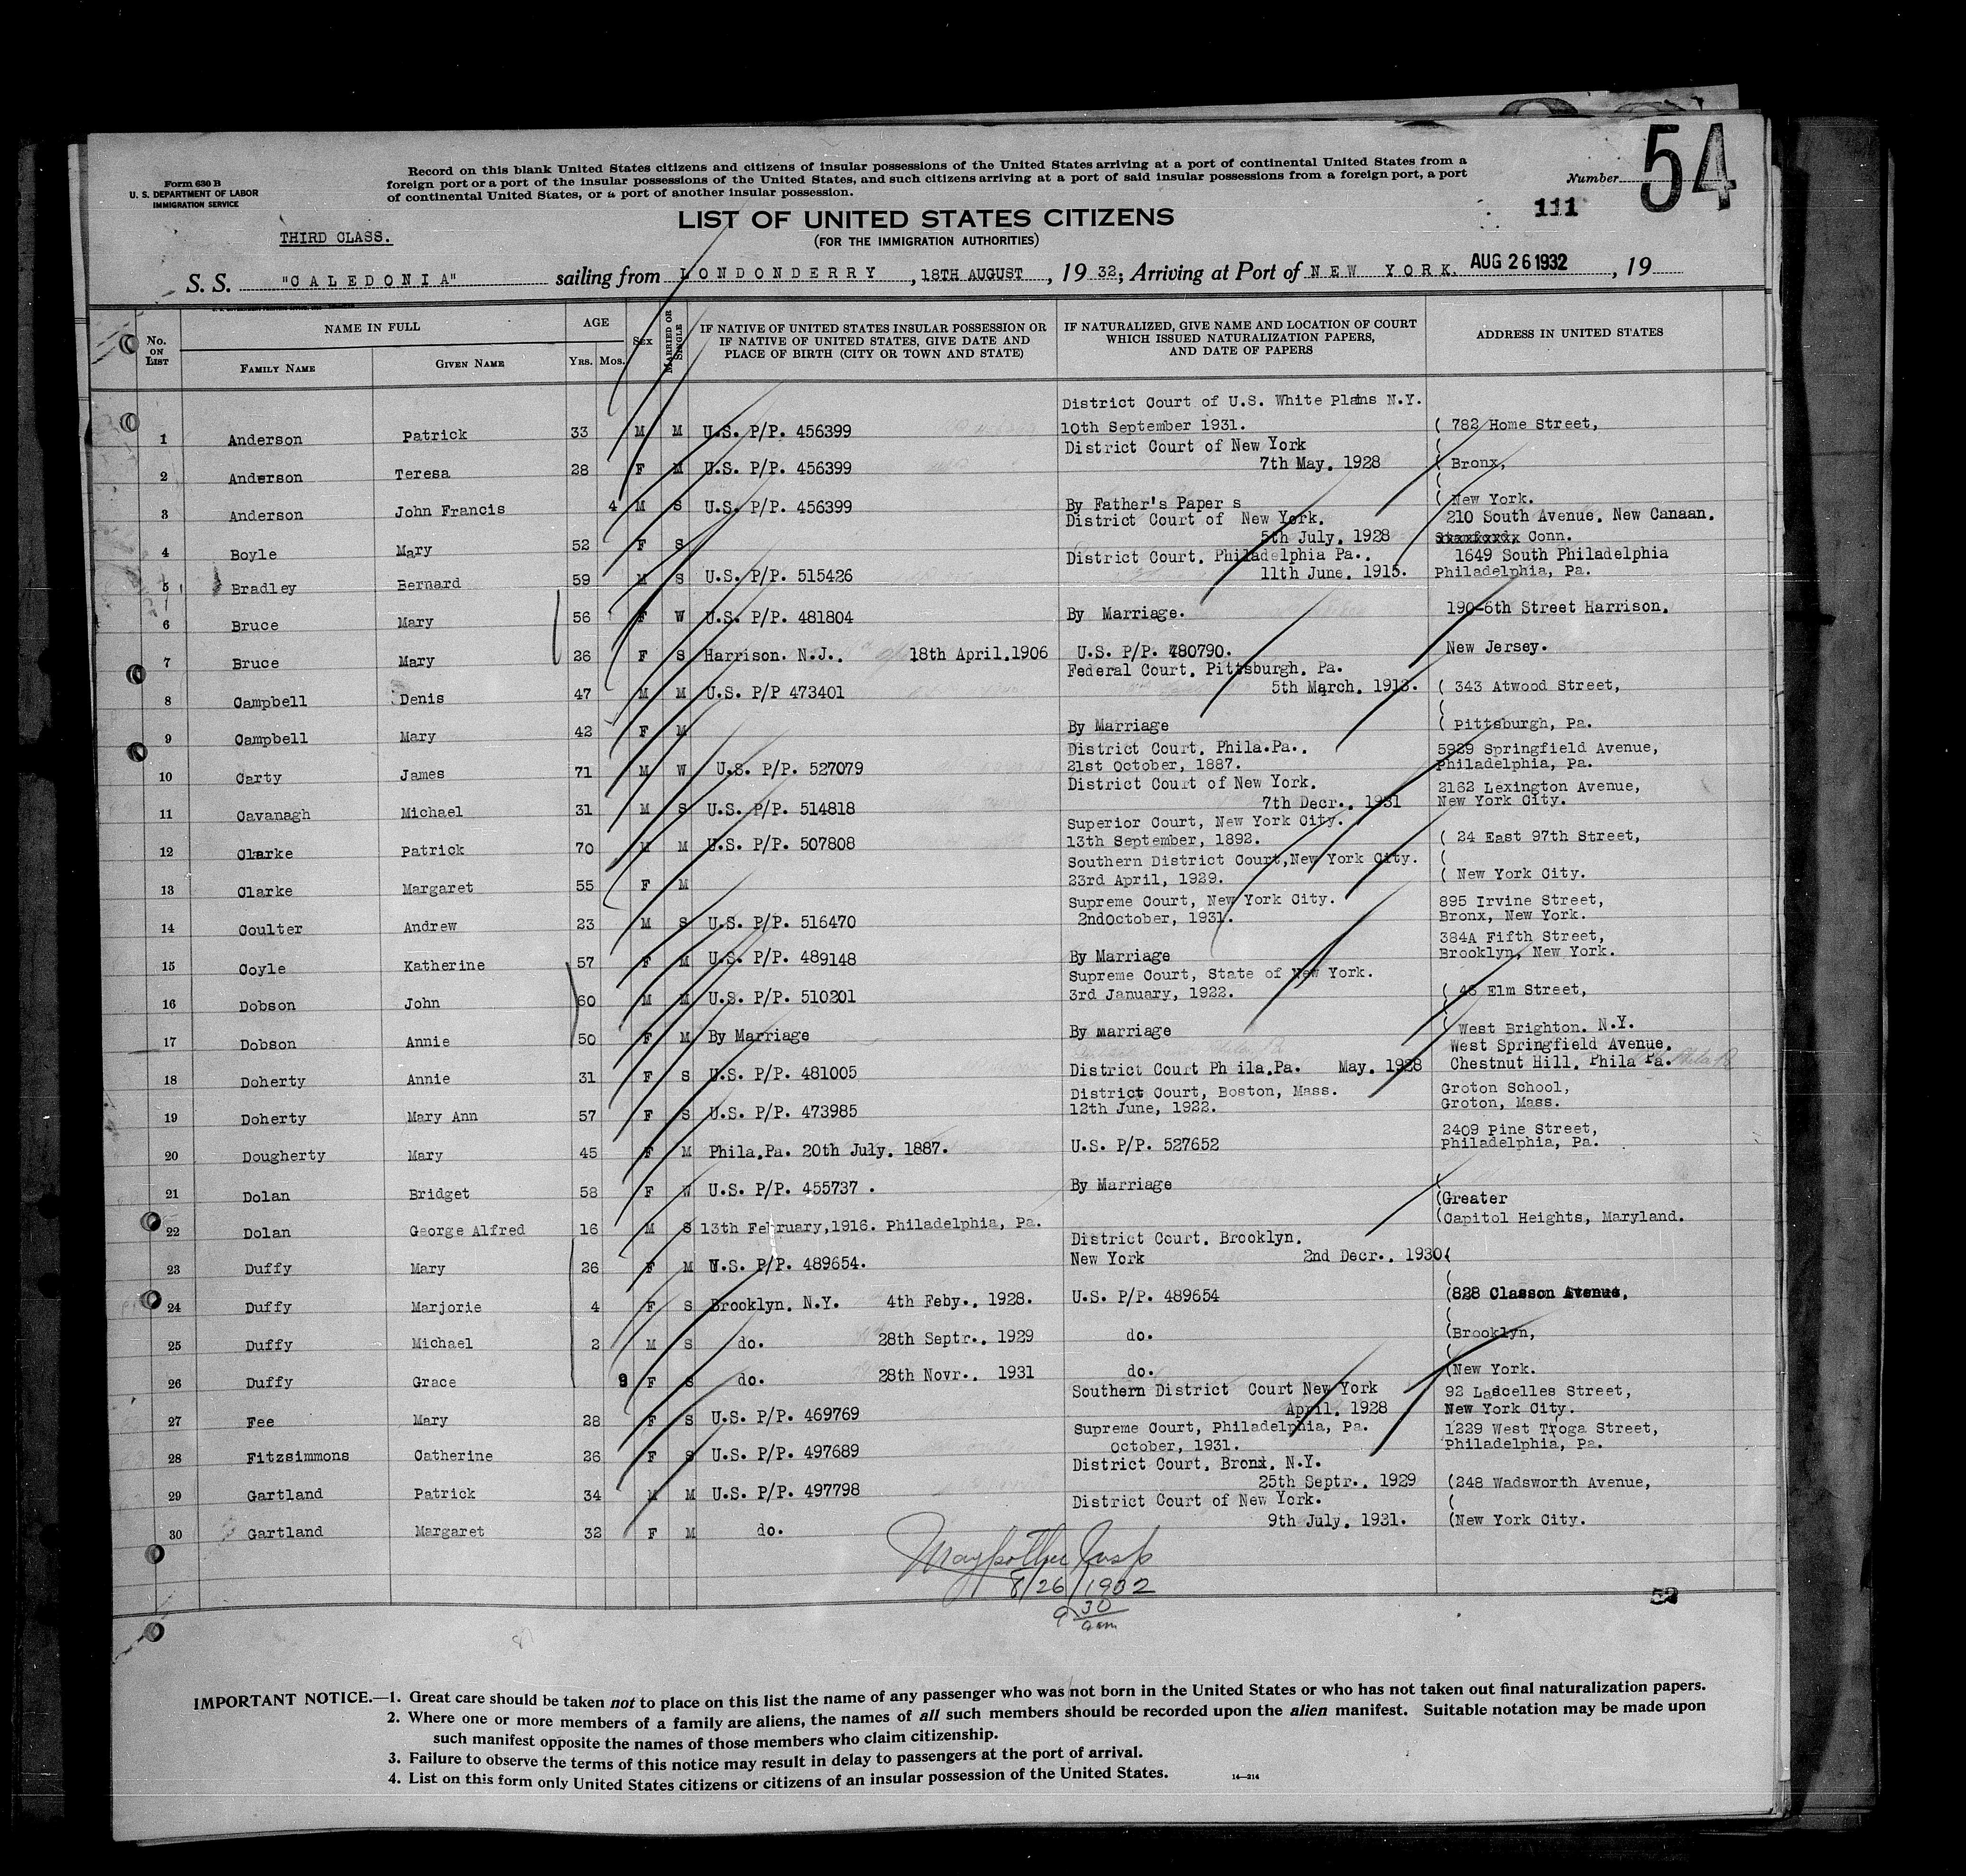 Form 630 B
U. S. DEPARTMENT OF LABOR
IMMIGRATION SERVICE
Record on this blank United States citizens and citizens of insular possessions of the United States arriving at a port of continental United States from a
foreign port or a port of the insular possessions of the United States, and such citizens arriving at a port of said insular possessions from a foreign port, a port
of continental United States, or a port of another insular possession.
Number 54
111
LIST OF UNITED STATES CITIZENS
(FOR THE IMMIGRATION AUTHORITIES)
THIRD CLASS.
S. S. "CALEDONIA" sailing from LONDONDERRY, 18TH AUGUST, 19 32; Arriving at Port of NEW YORK. AUG 26 1932, 19
No. ON LIST
NAME IN FULL
FAMILY NAME
GIVEN NAME
AGE
YRS. MOS.
SEX
MARRIED OR SINGLE
IF NATIVE OF UNITED STATES INSULAR POSSESSION OR
IF NATIVE OF UNITED STATES, GIVE DATE AND
PLACE OF BIRTH (CITY OR TOWN AND STATE)
IF NATURALIZED, GIVE NAME AND LOCATION OF COURT
WHICH ISSUED NATURALIZATION PAPERS,
AND DATE OF PAPERS
ADDRESS IN UNITED STATES
District Court of U.S. White Plains N.Y.
1 Anderson Patrick 33 M M U.S. P/P. 456399 10th September 1931. ( 782 Home Street,
District Court of New York (
2 Anderson Teresa 28 F M U.S. P/P. 456399 7th May. 1928 ( Bronx,
3 Anderson John Francis 4 M S U.S. P/P. 456399 By Father's Paper s ( New York.
District Court of New York. 210 South Avenue. New Canaan.
4 Boyle Mary 52 F S 5th July. 1928 Conn.
District Court. Philadelphia Pa.. 1649 South Philadelphia
5 Bradley Bernard 59 M S U.S. P/P. 515426 11th June. 1915. Philadelphia, Pa.
6 Bruce Mary 56 F W U.S. P/P. 481804 By Marriage. 190-6th Street Harrison.
7 Bruce Mary 26 F S Harrison. N.J.. 18th April.1906 U.S. P/P. 480790. New Jersey.
Federal Court. Pittsburgh. Pa.
8 Campbell Denis 47 M M U.S. P/P 473401 5th March. 1913. ( 343 Atwood Street,
(
9 Campbell Mary 42 F M By Marriage ( Pittsburgh, Pa.
District Court. Phila.Pa.. 5929 Springfield Avenue,
10 Carty James 71 M W U.S. P/P. 527079 21st October, 1887. Philadelphia, Pa.
District Court of New York. 2162 Lexington Avenue,
11 Cavanagh Michael 31 M S U.S. P/P. 514818 7th Decr.. 1931 New York City.
Superior Court, New York City.
12 Clarke Patrick 70 M M U.S. P/P. 507808 13th September, 1892. ( 24 East 97th Street,
Southern District Court,New York City. (
13 Clarke Margaret 55 F M 23rd April, 1929. ( New York City.
Supreme Court, New York City. 895 Irvine Street,
14 Coulter Andrew 23 M S U.S. P/P. 516470 2ndOctober, 1931. Bronx, New York.
384A Fifth Street,
15 Coyle Katherine 57 F M U.S. P/P. 489148 By Marriage Brooklyn, New York.
Supreme Court, State of New York.
16 Dobson John 60 M M U.S. P/P. 510201 3rd January, 1922. ( 46 Elm Street,
17 Dobson Annie 50 F M By Marriage By marriage ( West Brighton. N.Y.
West Springfield Avenue.
18 Doherty Annie 31 F S U.S. P/P. 481005 District Court Ph ila.Pa. May. 1928 Chestnut Hill. Phila Pa.
District Court, Boston, Mass. Groton School,
19 Doherty Mary Ann 57 F S U.S. P/P. 473985 12th June, 1922. Groton, Mass.
2409 Pine Street,
20 Dougherty Mary 45 F M Phila.Pa. 20th July. 1887. U.S. P/P. 527652 Philadelphia, Pa.
21 Dolan Bridget 58 F W U.S. P/P. 455737 . By Marriage (Greater
22 Dolan George Alfred 16 M S 13th February,1916. Philadelphia, Pa. (Capitol Heights, Maryland.
District Court. Brooklyn.
23 Duffy Mary 26 F M U.S. P/P. 489654. New York 2nd Decr.. 1930 (
24 Duffy Marjorie 4 F S Brooklyn. N.Y. 4th Feby.. 1928. U.S. P/P. 489654 (828 Classon Avenue.
25 Duffy Michael 2 M S do. 28th Septr.. 1929 do. (Brooklyn,
26 Duffy Grace 9 F S do. 28th Novr.. 1931 do. (New York.
Southern District Court New York 92 Lascelles Street,
27 Fee Mary 28 F S U.S. P/P. 469769 April. 1928 New York City.
Supreme Court, Philadelphia, Pa. 1229 West Tioga Street,
28 Fitzsimmons Catherine 26 F S U.S. P/P. 497689 October, 1931. Philadelphia, Pa.
District Court. Bronx. N.Y.
29 Gartland Patrick 34 M M U.S. P/P. 497798 25th Septr.. 1929 (248 Wadsworth Avenue,
District Court of New York. (
30 Gartland Margaret 32 F M do. 9th July. 1931. (New York City.
Insp
8/26/1932
9 30
am
52
IMPORTANT NOTICE.—1. Great care should be taken not to place on this list the name of any passenger who was not born in the United States or who has not taken out final naturalization papers.
2. Where one or more members of a family are aliens, the names of all such members should be recorded upon the alien manifest. Suitable notation may be made upon
such manifest opposite the names of those members who claim citizenship.
3. Failure to observe the terms of this notice may result in delay to passengers at the port of arrival.
4. List on this form only United States citizens or citizens of an insular possession of the United States. 14—214